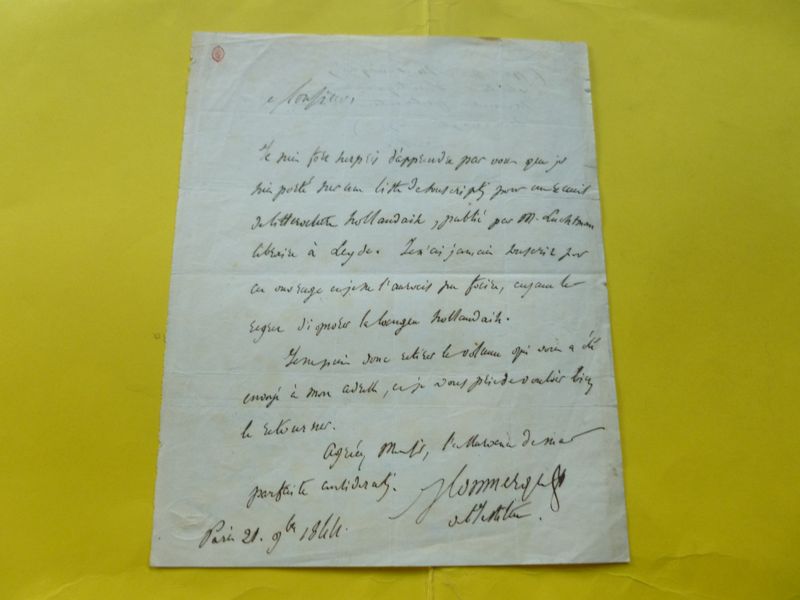 Monsieur,
Je suis fort surpris d'apprendre par vous que je
suis porté sur une liste de souscript. pour un recueil
de litterature hollandaise, publié par M. Luchtman
libraire à Leyde. Je n'ai jamais souscrit pour
cet ouvrage et je ne l'aurois pu faire, ayant le
regret d'ignorer la langue hollandaise.
Je ne puis donc retirer le volume qui vous a été
envoyé à mon adresse, et je vous prie de vouloir bien
le retourner.
Agréez, Monsr, l'assurance de ma
parfaite considérat.
Monmerqué
de l'Institut.
Paris 21. 9bre 1844.